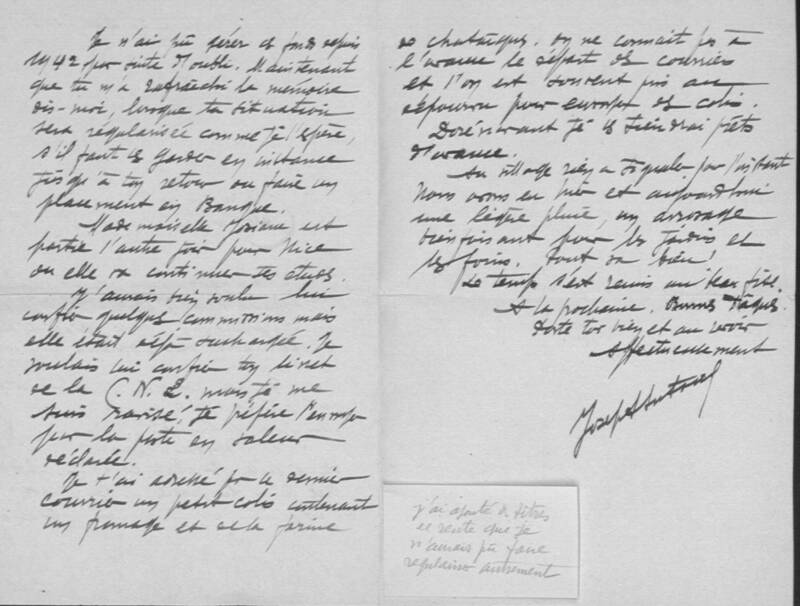 Je n'ai pû gérer ces fonds depuis
1942 par suite d'oubli. Maintenant
que tu m'a rafraichi la mémoire
dis-moi, lorsque ta situation
sera régularisée comme je l'espère,
s'il faut les garder en instance
jusqu'à ton retour ou faire un
placement en Banque.
Mademoiselle Josiane est
partie l'autre soir pour Nice
ou elle va continuer ses études.
J'aurais bien voulu lui
confier quelques commissions mais
elle était déjà surchargée. Je
voulais lui confier ton livret
de la C.N.E. mais je me
suis ravisé, je préfère l'envoyer
par la poste en valeur
déclarée.
Je t'ai adressé par ce dernier
courrier un petit colis contenant
un fromage et de la farine
de chataignes. On ne connait pas à
l'avance le départ des courriers
et l'on est souvent pris au
dépourvu pour envois de colis.
Dorénavant je les tiendrai prêts
d'avance.
Au village rien à signaler pour l'instant
Nous avons eu hier et aujourd'hui
une légère pluie, un arrosage
bienfaisant pour les jardins et
les foins. Tout va bien!
Le temps s'est remis au beau fixe.
A la prochaine. Bonnes Pâques.
Porte toi bien et au revoir
Affectueusement
Joseph
j'ai ajouté les titres
de rente que je
n'aurais pu faire
régulariser autrement